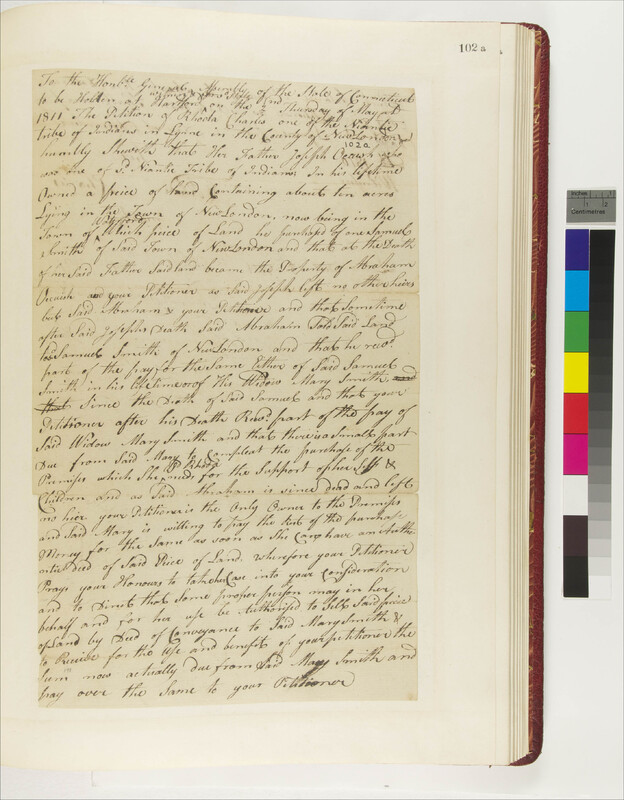 102a
To the Honble General Assembly of the State of Connecticut
to be Holden at Hartford on the 2nd Thursday of May AD
1811 The Petition of Rhoda Charles one of the Niantic
tribe of Indians in Lyme in the County of New London
102a
humbly Sheweth that Her Father Joseph who
was one of sd. Niantic Tribe of Indians In his life time
Owned a peice of Land Containing about ten acres
Lying in the Town of New London, now being in the
Town of Waterford which peice of Land he purchased of one Samuel
Smith of Said Town of New London and that at the Death
of Said Father Said land became the Property of Abraham
and your Petitioner as said Joseph left no other heirs
but Said Abraham & your Petitioner and that Sometime
after Said Josephs Death Said Abraham Sold Said Land
to Samuel Smith of New London and that he recd
part of the pay for the Same Either of Said Samuel
Smith in his life time or of His Widow Mary Smith
Since the Death of Said Samuel and that your
Petitioner after his Death Recd. part of the pay of
Said Widow Mary Smith and that there is a Small part
Due from Said Mary to Compleat the purchase of the
Premises which She needs for the Support of her Self &
Children and as Said Abraham is since Dead and left
no heir your Petitioner is the Only Owner to the Premises
and Said Mary is willing to pay the Rest of the purchase
Money for the Same as soon as She Can have an Authe
ntic Deed of Said Peice of Land, wherefore your Petitioner
Prays your Honours to take her Case into your Consideration
and to Direct that Some proper person may in her
behalf and for her use be Authorised to Sell Said peice
of Land by Deed of Conveyance to Said Mary Smith &
to Receive for the Use and benefit of your petitioner the
Sum now actually due from Said Mary Smith and
pay over the Same to your Petitioner
Inches
1
2
Centimetres